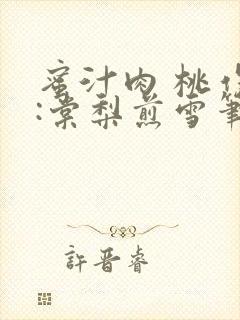 蜜汁肉桃作
:棠梨煎雪筆
許晋睿